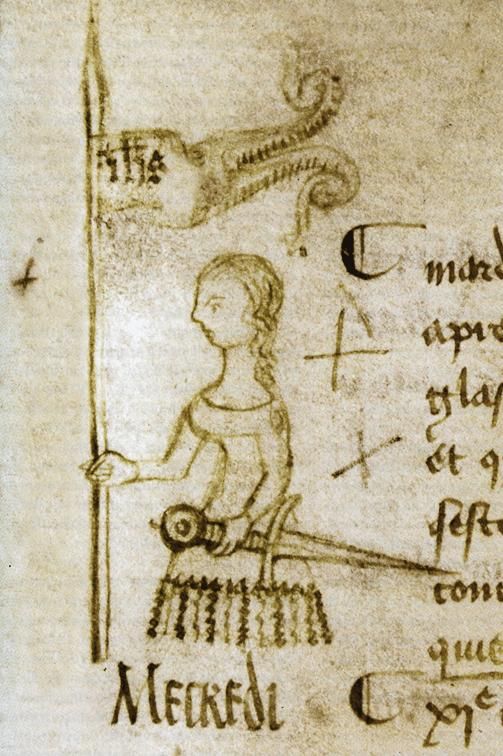 ihs
C
mard
apre
glas
et q
feste
con
que
MECREDI
C xj e